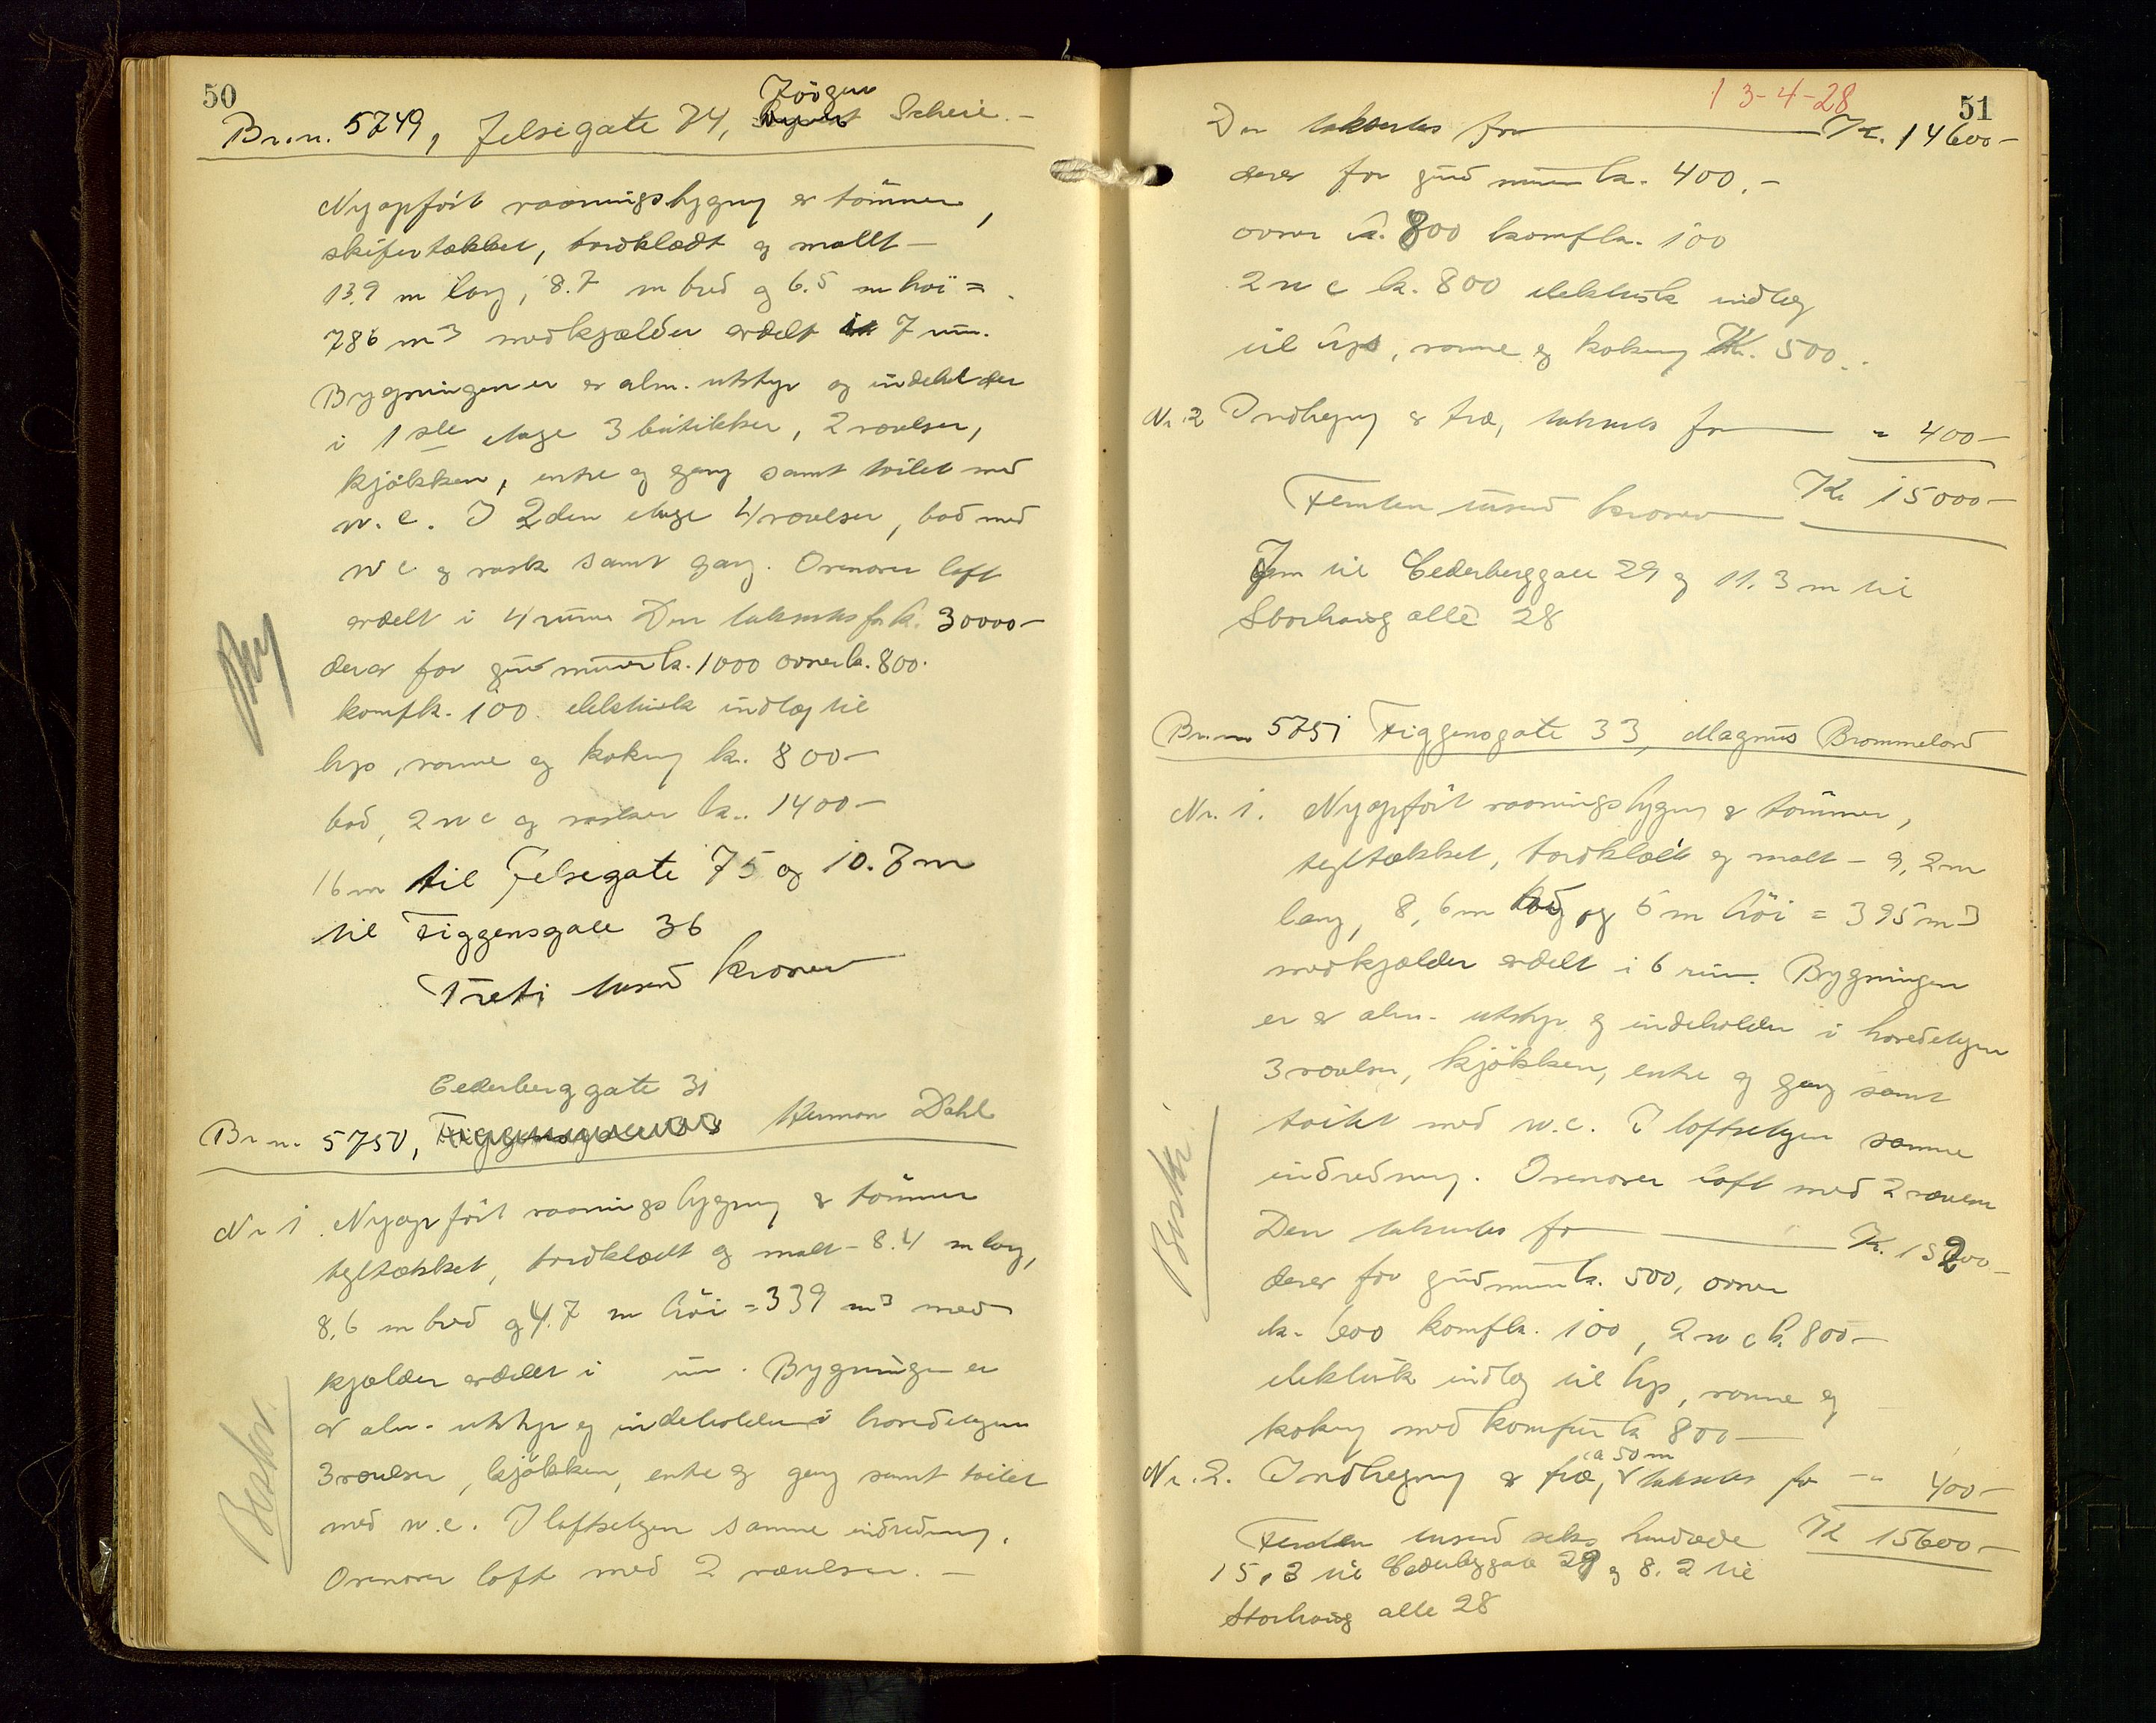 50
Jörgen
Br.n. 5749, Jelsegate 74, Scheie. -
Nyopfört vaaningsbygng av tömmer,
skifertækket, bordklædt og mallt -
13.9 m lang, 8.7 m bred og 6.5 m höi =
786 m3 med kjælder avdelt i 7 rum.
Bygningen er av alm. utstyr og indeholder
i 1ste etage 3 butikker, 2 værelser,
kjökken, entre og gang samt toilet med
w.c. I 2den etage 4 værelser, bad med
wc og vask samt gang. Ovenover loft
avdelt i 4 rum Den taksertes for k. 30000-
derav for grundmurer k. 1000 ovner k. 800.
komf k. 100 elektrisk indlæg til
lys, varme og kokng k. 800-
bad, 2 wc og vasker k. 1400-
16 m til Jelsegate 75 og 10.7 m
til Figgensgate 36
Treti tusend kroner
Cederberggate 31
Br.n. 5750, Herman Dahl
Nr 1. Nyopfört vaaningsbygng av tömmer
tegltækket, bordklædt og malt - 8.4 m lang,
8,6 m bred og 4.7 m höi = 339 m3 med
kjælder avdelt i rum. Bygningen er
av alm. utstyr og indeholder i hovedetagen
3 værelser, kjökken, entre og gang samt toilet
med w.c. I loftsetagen samme indredning.
Ovenover loft med 2 værelser. -
Beskr.
13-4-28
51
Den taksertes for K. 14600-
derav for grundmurer k. 400.-
ovner k. 800 komf k. 100
2 wc k. 800 elektrisk indlæg
til lys, varme og kokng Kr. 500.
Nr. 2 Indhegng av træ, taksertes for " 400-
Femten tusend kroner K 15000-
7 m til Cederberggate 29 og 11.3 m til
Storhaug allé 28
Br.n. 5751 Figgensgate 33, Magnus Brommeland
Nr. 1. Nyopfört vaaningsbygng av tömmer,
tegltækket, bordklædt og malt - 9,2 m
lang, 8,6 m bred og 5 m höi = 395 m3
med kjælder avdelt i 6 rum. Bygningen
er av alm. utstyr og indeholder i hovedetagen
3 værelser, kjökken, entre og gang samt
toilet med w.c. I loftsetagen samme
indredning. Ovenover loft med 2 værelser
Den taksertes for K. 15200-
derav for grundmurer k. 500, ovner
k. 600 komf k. 100, 2 wc k. 800-
elektrisk indlæg til lys, varme og
kokng med komfur k 800-
ca 50 m
Nr. 2. Indhegng av træ, taksertes for " 400-
Femten tusend seks hundrede K 15600-
15,3 til Cederberggate 29 og 8.2 til
Storhaug alle 28
Beskr.